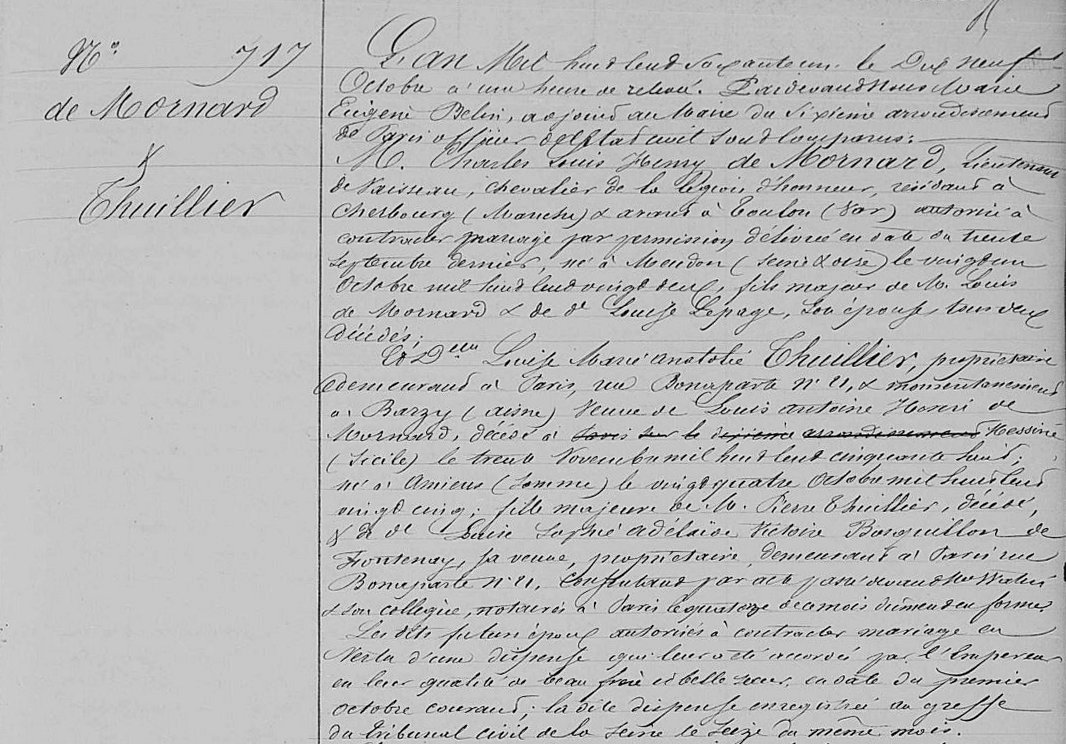 N° 717
de Mornard
&
Thuillier
L'an Mil huit cent soixante un le Dix neuf
Octobre à une heure de relevée. Pardevant Nous Marie
Eugène Belin, adjoint au Maire du sixième arrondissement
de Paris officier de l'Etat civil sont comparus:
M. Charles Louis Henry de Mornard, Lieutenant
de Vaisseau, Chevalier de la Légion d'honneur, résidant à
Cherbourg (Manche) & avant à Toulon (Var) autorisé à
contracter mariage par permission délivrée en date du trente
septembre dernier, né à Meudon (Seine & Oise) le vingt un
Octobre mil huit cent vingt deux, fils majeur de M. Louis
de Mornard & de de Louise Lepage, son épouse, tous deux
décédés;
Et Delle Louise Marie Anatolie Thuillier, propriétaire
demeurant à Paris, rue Bonaparte N° 21, & momentanément
à Barzy (Aisne) Veuve de Louis Antoine Henri de
Mornard, décédé à Paris sur le dixième arrondissement Messine
(Sicile) le trente Novembre mil huit cent cinquante huit;
née à Amiens (Somme) le vingt quatre Octobre mil huit cent
vingt cinq; fille majeure de M. Pierre Thuillier, décédé,
& de de Louise Sophie Adélaïde Victoire Bosquillon de
Fontenay, sa veuve, propriétaire, demeurant à Paris rue
Bonaparte N° 21, consentant par acte passé devant Me
& son collègue, notaires à Paris le quatorze de ce mois dûment en forme
Les dits futurs époux autorisés à contracter mariage en
vertu d'une dispense qui leur a été accordée par l'Empereur
en leur qualité de beau frère et belle soeur, en date du premier
octobre courant; la dite dispense enregistrée au greffe
du tribunal civil de la Seine le seize du même mois.